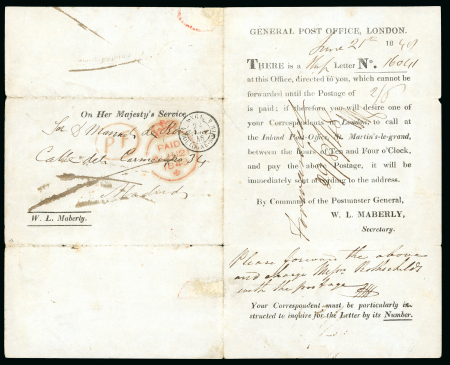 On Her Majesty's Service
PAID
Madrid
W. L. Maberly.
GENERAL POST OFFICE, LONDON.
June 18
THERE is a Letter No.
at this Office, directed to you, which cannot be
forwarded until the Postage of 2/5
is paid; if therefore you will desire one of
your Correspondents in London, to call at
the Inland Post-Office, St. Martin's-le-grand,
between the hours of Ten and Four o'Clock,
and pay the above Postage, it will be
immediately sent according to the address.
By Command of the Postmaster General,
W. L. MABERLY,
Secretary.
Please forward the above
and charge Messrs Rothschilds
with the postage
Your Correspondent must be particularly in-
structed to inquire for the Letter by its Number.